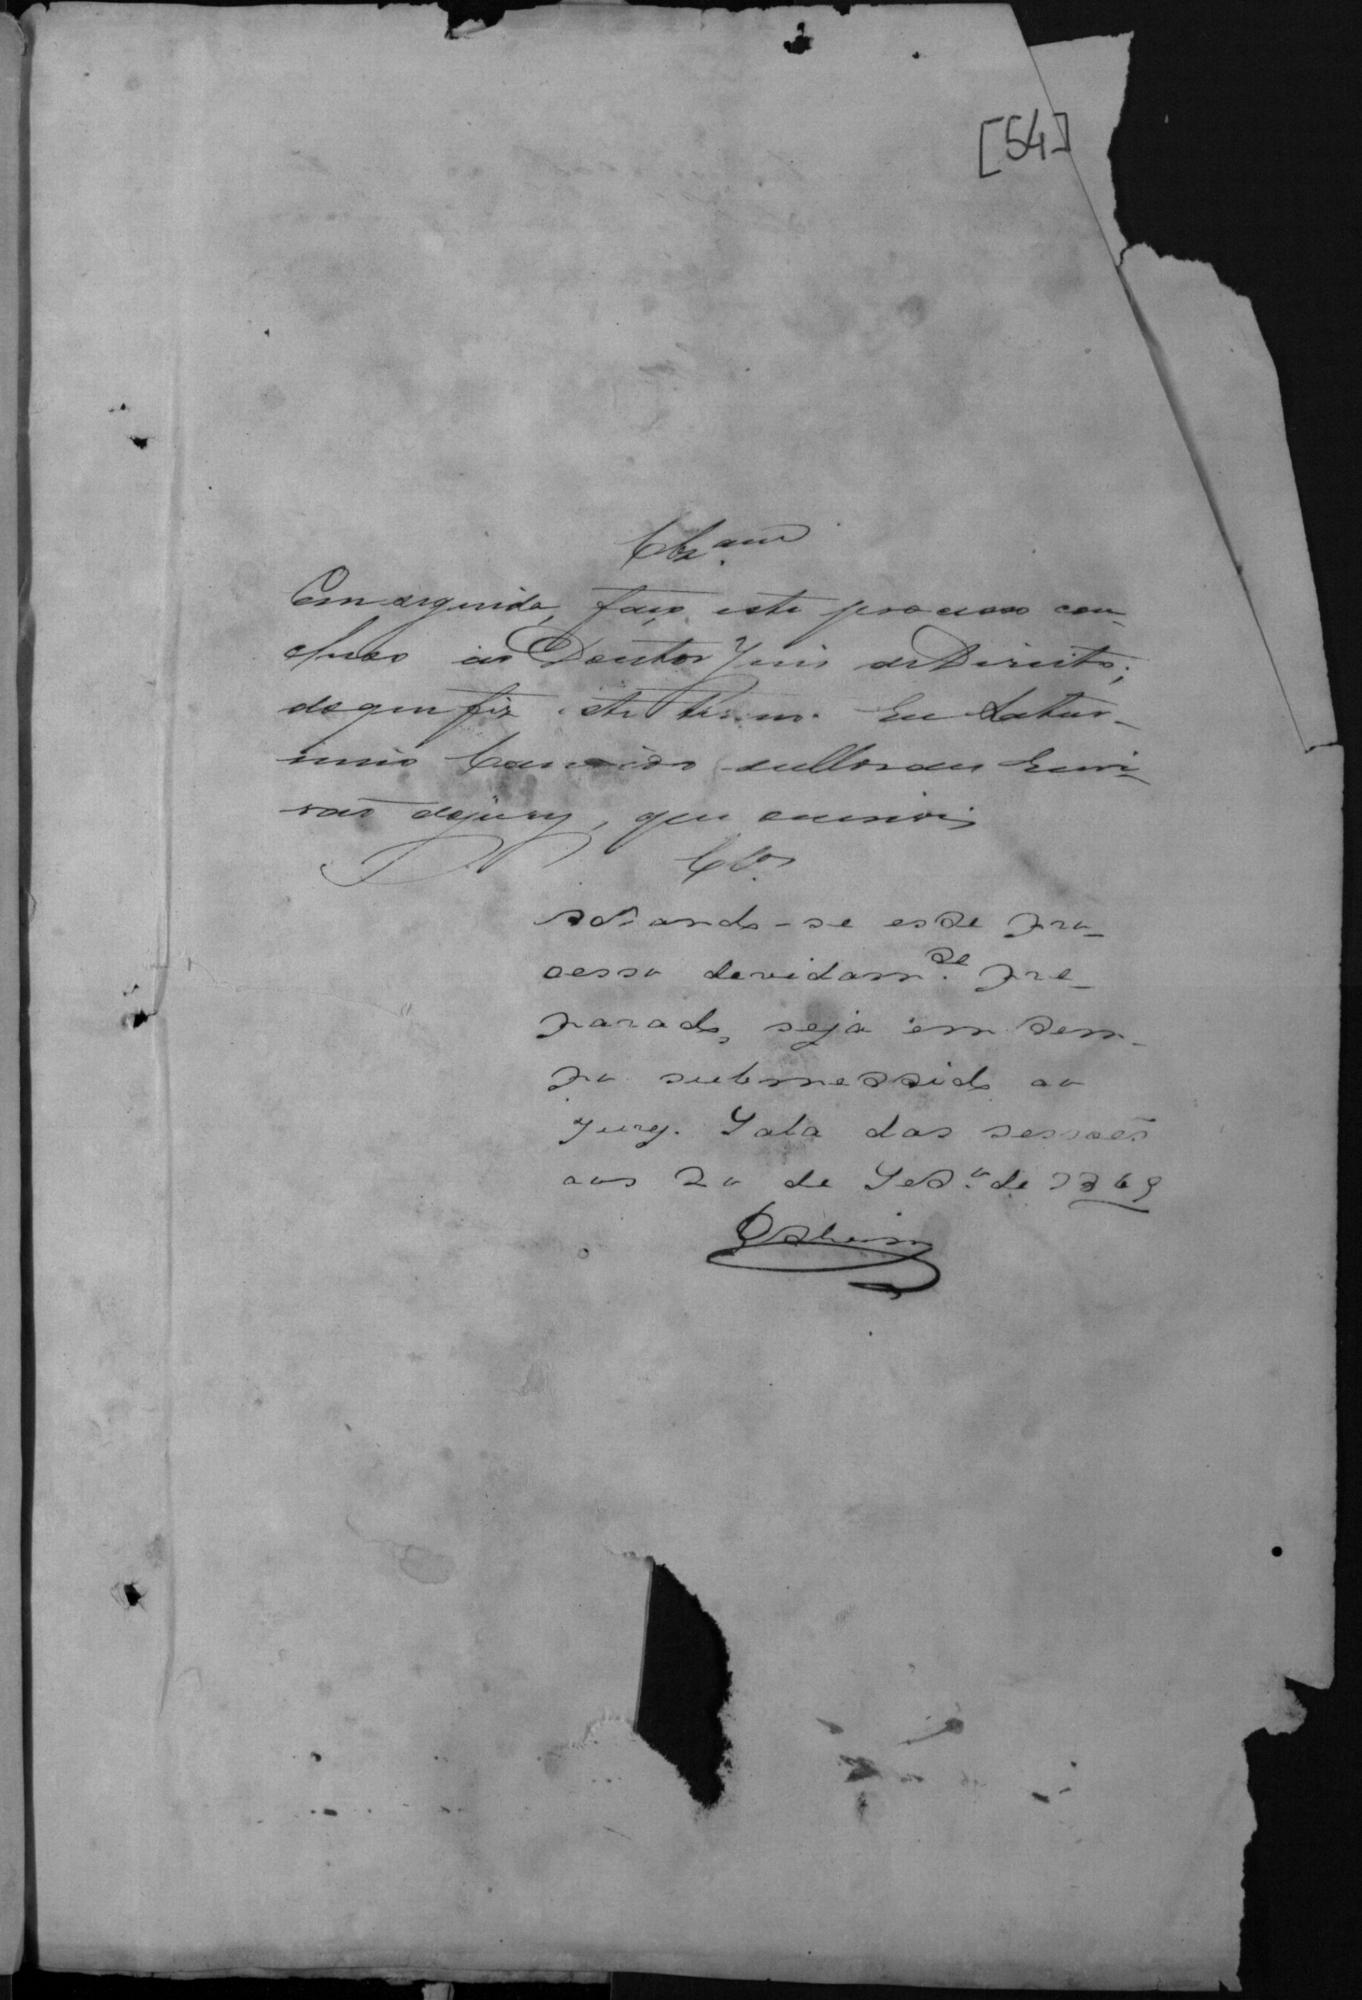 [54]
Clz.am
Em seguida, faço este processo con-
cluso ao Doutor Juis de Direito;
do que fiz este termo. Eu Satur-
nino Escri-
vaõ do jury, que escrevi
Cl.os
Achando-se este pro-
cesso devidam.te pre-
parado, seja em tem-
po submettido ao
Jury. Sala das sessoẽs
aos 20 de Set.o de 1869